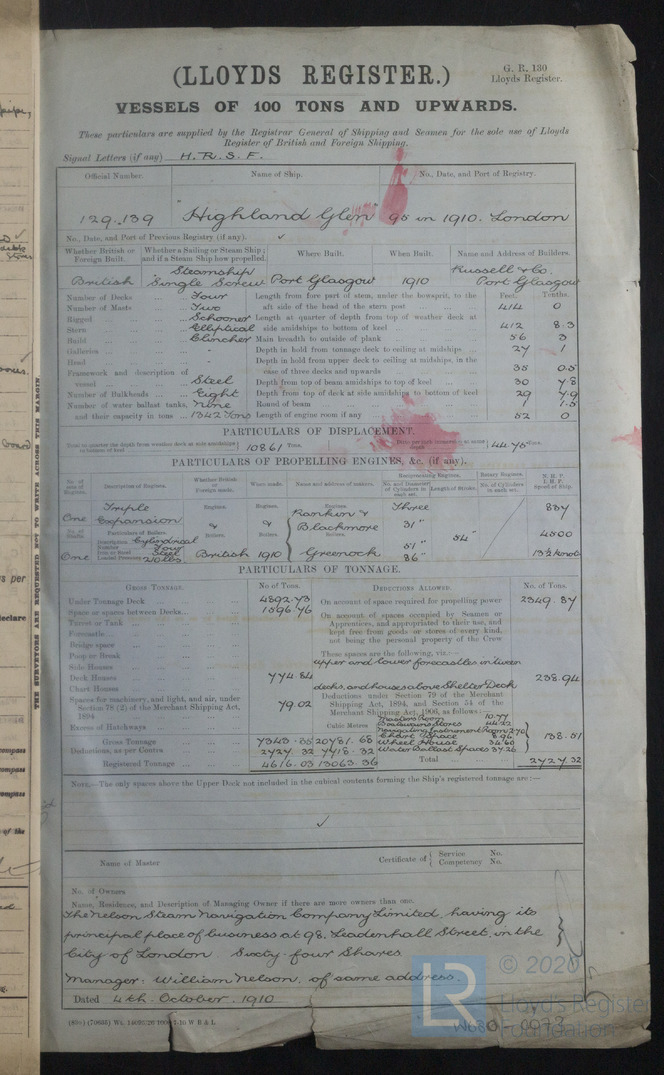 (LLOYDS REGISTER.)
G. R. 130
Lloyds Register.
VESSELS OF 100 TONS AND UPWARDS.
These particulars are supplied by the Registrar General of Shipping and Seamen for the sole use of Lloyds
Register of British and Foreign Shipping.
Signal Letters (if any) H.R.S.F.
Official Number. Name of Ship. No., Date, and Port of Registry.
129.139 "Highland Glen" 95 in 1910. London
No., Date, and Port of Previous Registry (if any). ✓
Whether British or Foreign Built. Whether a Sailing or Steam Ship; and if a Steam Ship how propelled. Where Built. When Built. Name and Address of Builders.
British Steamship Single Screw Port Glasgow 1910 Russell & Co. Port Glasgow
Feet. Tenths.
Number of Decks Four Length from fore part of stem, under the bowsprit, to the
Number of Masts Two aft side of the head of the stern post 414 0
Rigged Schooner Length at quarter of depth from top of weather deck at
Stern Elliptical side amidships to bottom of keel 412 8.3
Build Clincher Main breadth to outside of plank 56 3
Galleries - Depth in hold from tonnage deck to ceiling at midships 27 1
Head Depth in hold from upper deck to ceiling at midships, in the
Framework and description of case of three decks and upwards 35 0.5
vessel Steel Depth from top of beam amidships to top of keel 30 7.8
Number of Bulkheads Eight Depth from top of deck at side amidships to bottom of keel 29 7.9
Number of water ballast tanks, Nine Round of beam 1 1.5
and their capacity in tons 1342 Tons Length of engine room if any 52 0
PARTICULARS OF DISPLACEMENT.
Total to quarter the depth from weather deck at side amidships to bottom of keel 10861 Tons. Ditto per inch immersion at same depth 44.75 Tons.
PARTICULARS OF PROPELLING ENGINES, &c. (if any).
No. of sets of Engines. Description of Engines. Whether British or Foreign made. When made. Name and address of makers. Reciprocating Engines. No. and Diameter of Cylinders in each set. Length of Stroke. Rotary Engines. No. of Cylinders in each set. N.H.P. I.H.P. Speed of Ship.
One Triple Expansion Engines. Engines. Engines. Rankin & Blackmore Three 31" 837
Particulars of Boilers. & & 51" 54" 4500
Description Cylindrical
Number Four
Iron or Steel Steel
Loaded Pressure
One British 1910 Greenock 86" 13½ knots
PARTICULARS OF TONNAGE.
GROSS TONNAGE. No of Tons. DEDUCTIONS ALLOWED. No. of Tons.
Under Tonnage Deck 4892.73 On account of space required for propelling power 2349.87
Space or spaces between Decks 1596.76 On account of spaces occupied by Seamen or
Turret or Tank Apprentices, and appropriated to their use, and
Forecastle kept free from goods or stores of every kind,
Bridge space not being the personal property of the Crew
Poop or Break These spaces are the following, viz.:—
Side Houses upper and lower forecastles in tween
Deck Houses 774.84 238.94
Chart House decks, and houses above Shelter Deck
Spaces for machinery, and light, and air, under Section 78 (2) of the Merchant Shipping Act, 1894 79.02
Deductions under Section 79 of the Merchant Shipping Act, 1894, and Section 54 of the Merchant Shipping Act, 1906, as follows:—
Excess of Hatchways Cubic Metres
Masters Room 10.77
Boatswains Stores 44.22
Navigating Instrument Room 2.70
Chart Space 8.96
Wheel House 34.60
Water Ballast Spaces 37.26
138.51
Gross Tonnage 7343.35 20781.68
Deductions, as per Contra 2727.32 7718.32
Registered Tonnage 4616.03 13063.36 Total 2727.32
NOTE.—The only spaces above the Upper Deck not included in the cubical contents forming the Ship's registered tonnage are:—
✓
Name of Master Certificate of { Service No. Competency No.
No. of Owners
Name, Residence, and Description of Managing Owner if there are more owners than one.
The Nelson Steam Navigation Company Limited, having its
principal place of business at 98, Leadenhall Street, in the
City of London Sixty four Shares
Manager: William Nelson, of same address.
Dated 4th October. 1910
THE SURVEYORS ARE REQUESTED NOT TO WRITE ACROSS THIS MARGIN.
© 2020
LR
Lloyd's Register
Foundation
W680-0093